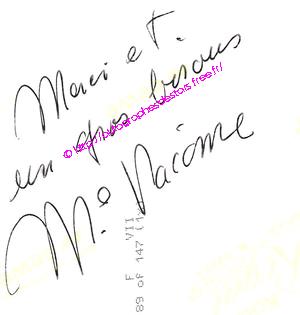 Merci et
un gros bisous
© http://autographesdestars.free.fr/
Mº Nacime
F VII
89 of 147 (1